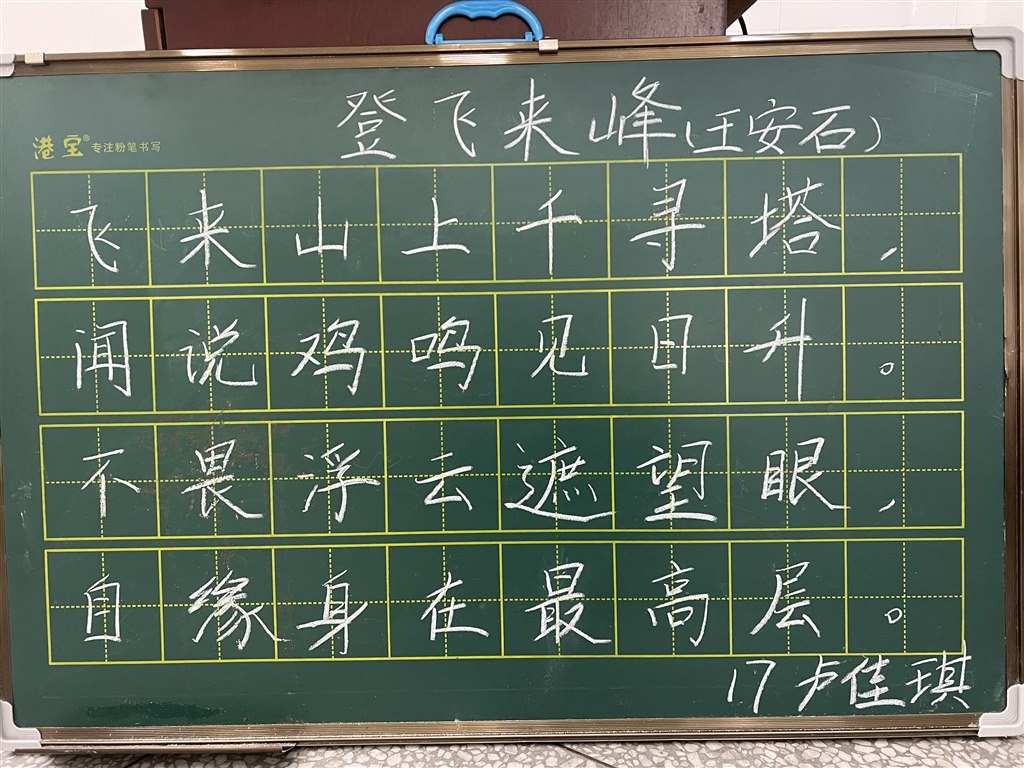 登飞来峰(王安石)
港宝® 专注粉笔书写
飞来山上千寻塔,
闻说鸡鸣见日升。
不畏浮云遮望眼,
自缘身在最高层。
17卢佳琪